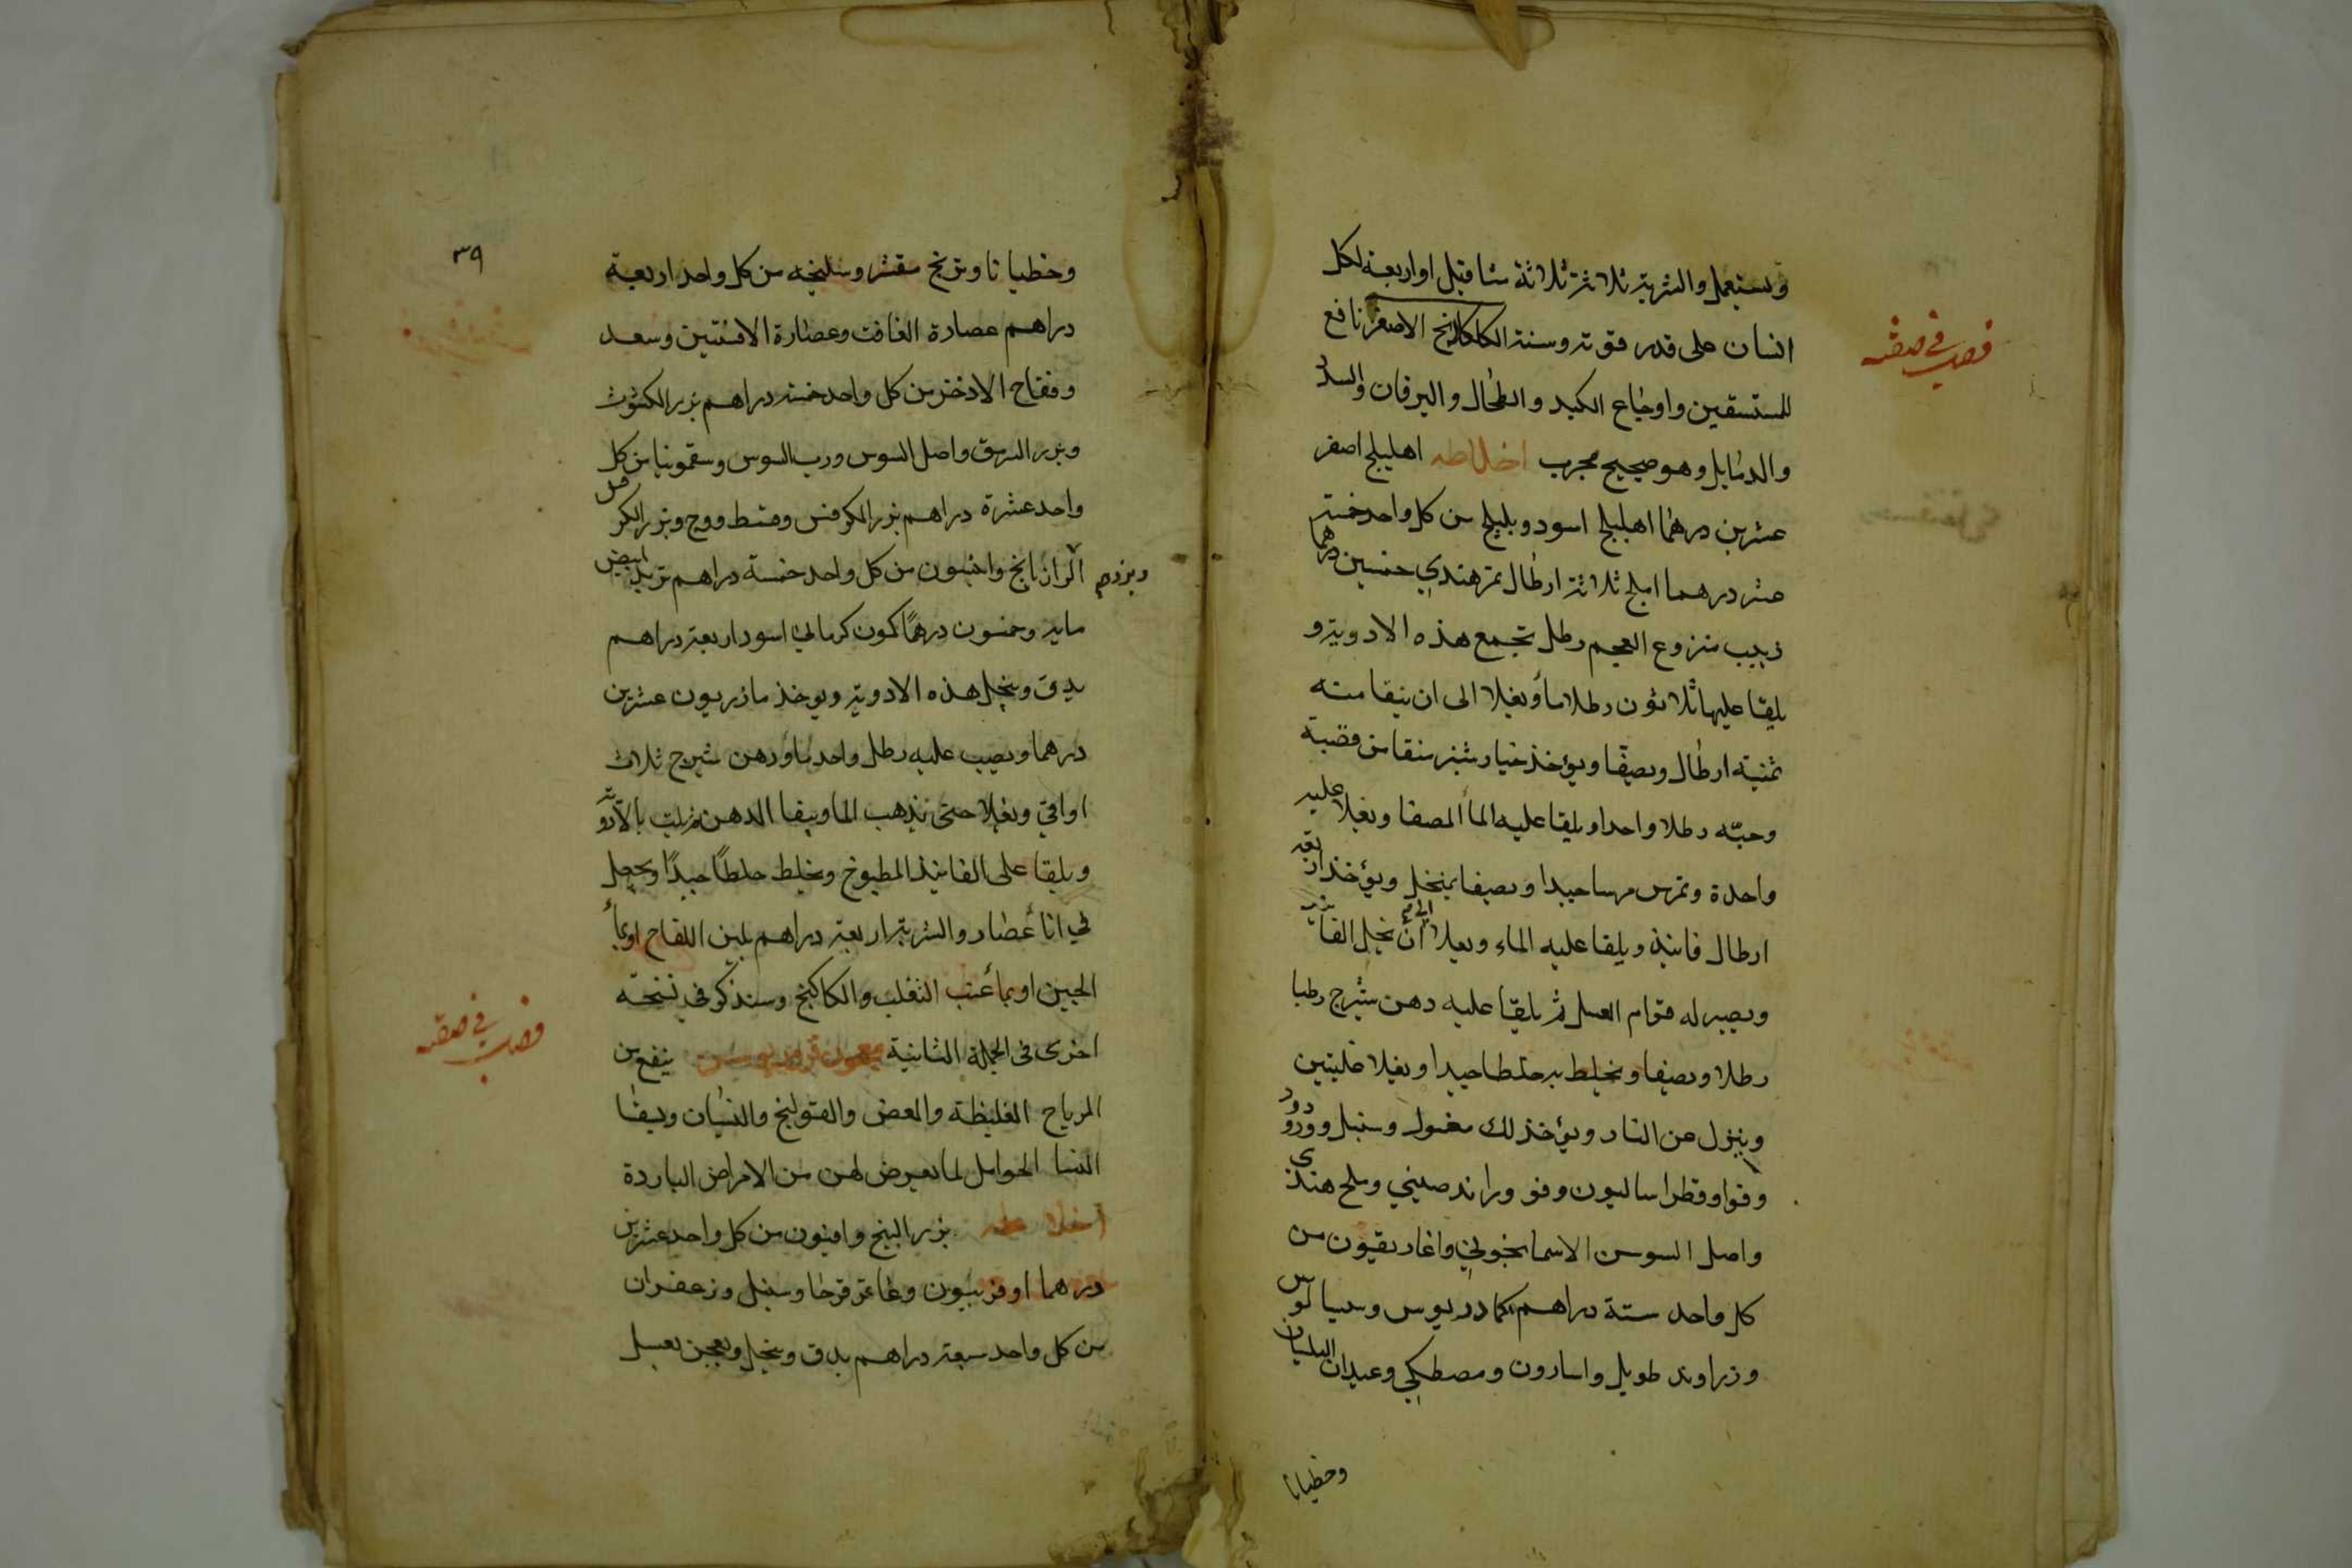 ويستعمل والشربة ثلاثة ثلاثة مثاقيل او اربعة لكل
فصل في صفة
انسان على قدر قوته وسنة الكلكلانج الاصفر نافع
للمستسقين واوجاع الكبد والطحال واليرقان والسدد
والدمابل وهو صحيح مجرب اخلاطه اهليلج اصفر
عشرين درهما اهليلج اسود وبليلج من كل واحد خمسة
عشر درهما املج ثلاثة ارطال تمرهندي خمسين درهما
زبيب منزوع العجم رطل تجمع هذه الادوية و
يلقا عليها ثلاثون رطلا ماء ويغلا الى ان يبقا منه
ثمنية ارطال ويصفا ويؤخذ خيارشنبر منقا من قصبة
وحبه رطلا واحدا ويلقا عليه الماء المصفا ويغلا عليه
واحدة وتمرس مرسا جيدا ويصفا بمنخل ويؤخذ اربعة
ارطال فانيذ ويلقا عليه الماء ويغلا الى ان يحل الفانيذ
ويصير له قوام العسل ثم يلقا عليه دهن شيرج رطبا
رطلا ونصفا ويخلط به خلطا جيدا ويغلا غليتين
وينزل عن النار ويؤخذ لك مغسول وسنبل وورد
وفوا وقطراساليون وفو وراند صيني وملح هندى
واصل السوسن الاسمانجوني واغاريقون من
كل واحد ستة دراهم كمادريوس وسيسالوس
وزراوند طويل واسارون ومصطكي وعيدان البلسان
وجنطيانا
٣٩
وجنطيانا وبرنج مقشر وسليخه من كل واحد اربعة
دراهم عصارة الغافت وعصارة الافسنتين وسعد
وفقاح الاذخر من كل واحد خمسة دراهم بزر الكشوث
وبزر السرمق واصل السوس ورب السوس وسقمونيا من كل
واحد عشرة دراهم بزر الكرفس وقسط ووج وبزر الكرفس
الرازيانج وانيسون من كل واحد خمسة دراهم تربد ابيض
مايه وخمسون درهمًا كمون كرماني اسود اربعة دراهم
يدق وينخل هذه الادوية ويوخذ مازريون عشرين
درهما ويصب عليه رطل واحد ماء ودهن شيرج ثلاث
اواقي ويغلا حتى يذهب الما ويبقا الدهن ثم يلت بالادوية
ويلقا على الفانيذ المطبوخ ويخلط خلطًا جيدًا ويجعل
في اناء غضار والشربة اربعة دراهم بلبن اللقاح او بماء
الجبن او بماء عنب الثعلب والكاكنج وسنذكر في نسخته
فصل في صفة
اخرى فى الجملة الثانية معجون ينفع من
الرياح الغليظة والمغص والقولنج والنسيان ويسقا
النسا الحوامل لما يعرض لهن من الامراض الباردة
اخلاطه بزر البنج وافيون من كل واحد عشرين
درهما اوفربيون وعاقرقرحا وسنبل وزعفران
من كل واحد سبعة دراهم يدق وينخل ويعجن بعسل